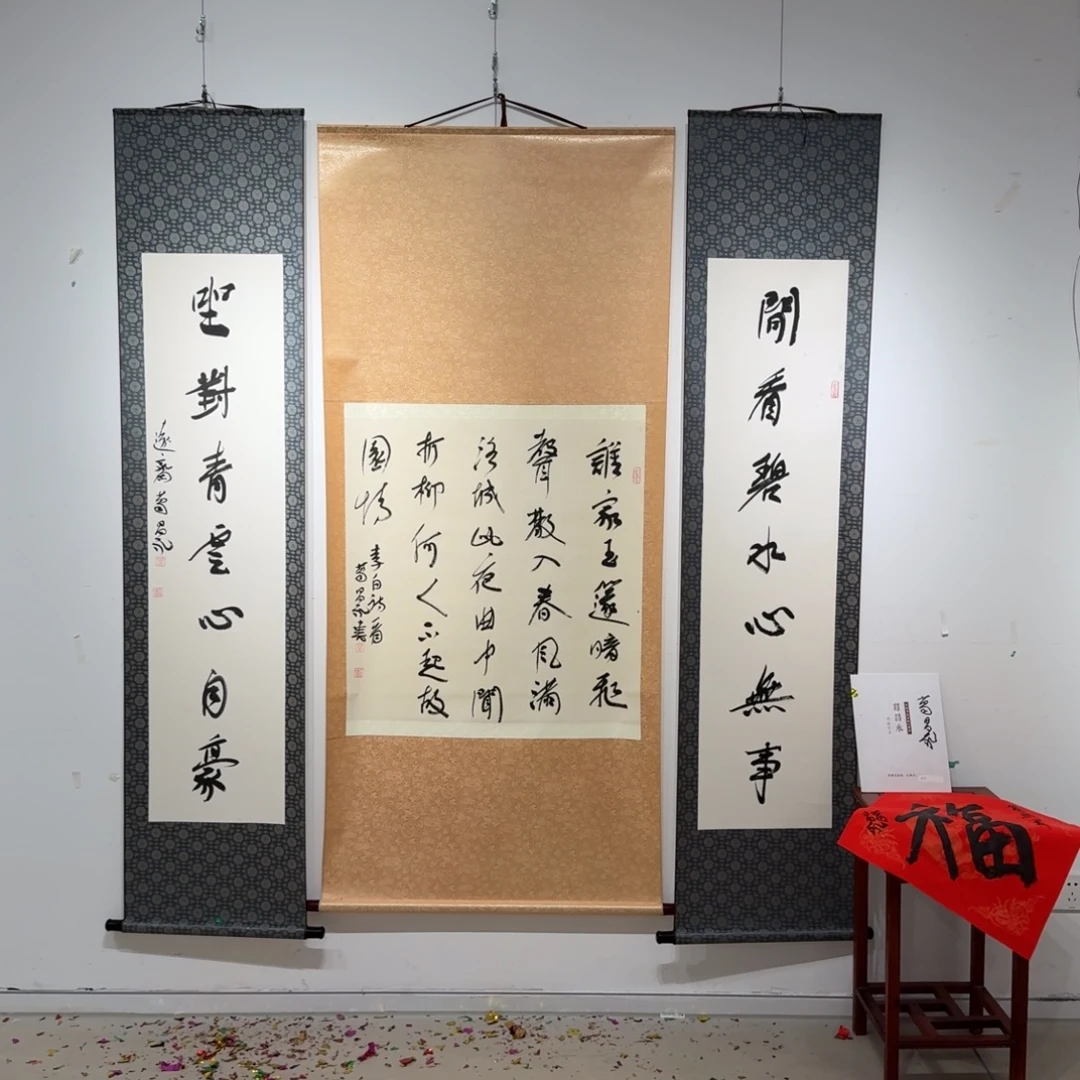 閒看碧水心無事
誰家玉篴暗飛
聲散入春風滿
洛城此夜曲中聞
折柳何人不起故
園情
李白詩一首
葛昌永書
坐對青雲心自豪
葛昌永
葛昌永
葛昌永
福